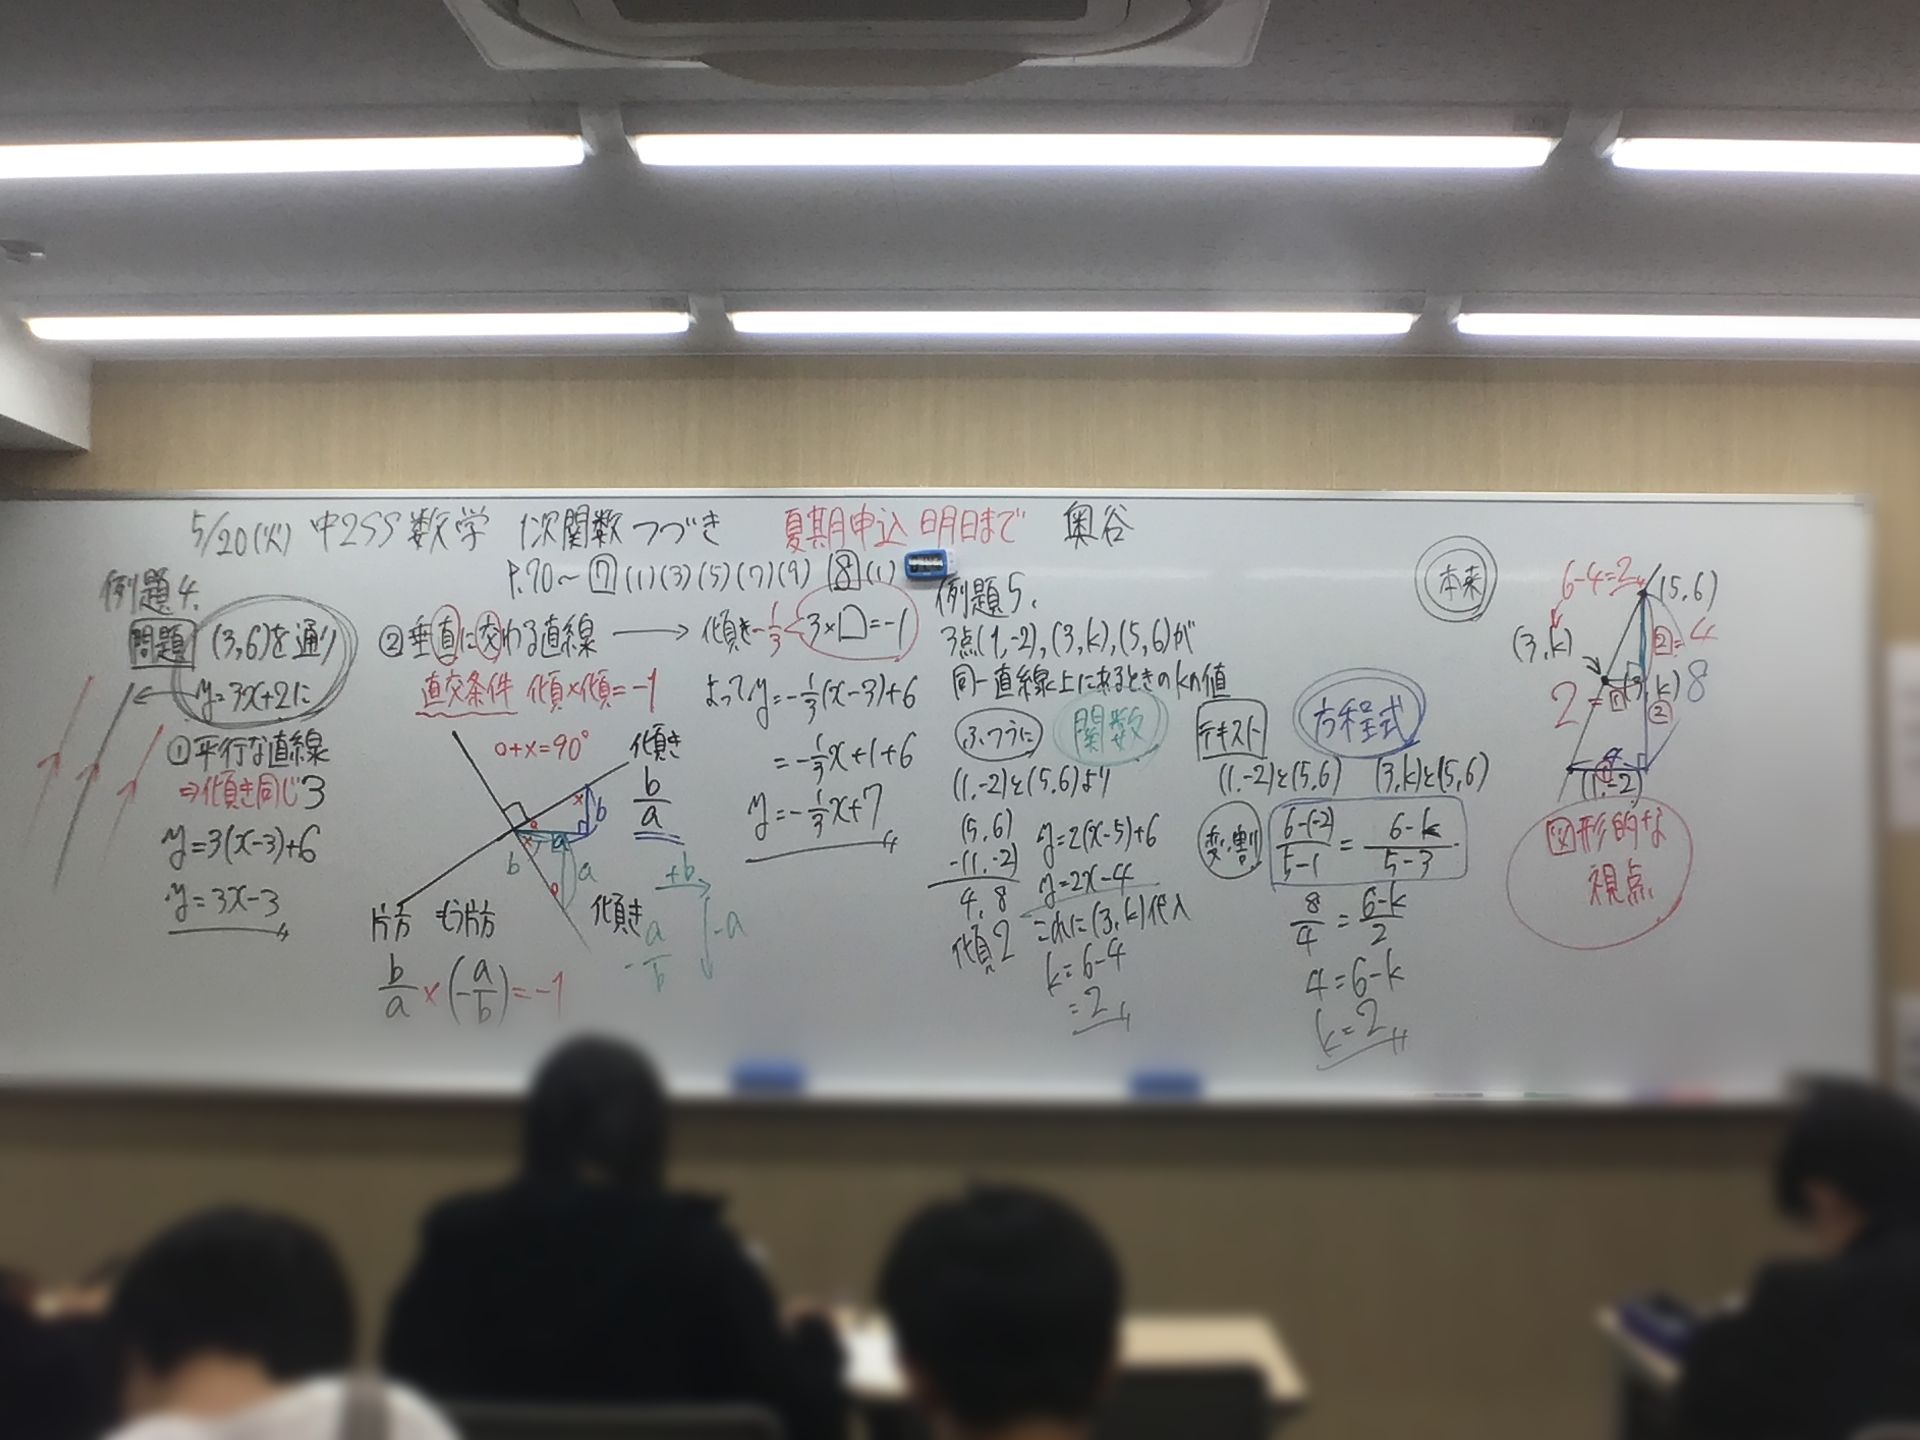 5/20(火) 中2SS 数学 1次関数 つづき 夏期申込 明日まで 奥谷
P.70～ 7 (1)(3)(5)(7)(9) 8 (1)
例題4.
問題 (3,6)を通り
y=3x+2に
①平行な直線
⇒傾き同じ3
y=3(x-3)+6
y=3x-3
②垂直に交わる直線 → 傾き-1/3 3×□=-1
直交条件 傾×傾=-1
○+×=90°
傾き
b/a
b
a
b
a
傾き
-a/b
+b
-a
片方 もう片方
b/a × (-a/b) = -1
よって y=-1/3(x-3)+6
=-1/3x+1+6
y=-1/3x+7
例題5.
3点(1,-2),(3,k),(5,6)が
同一直線上に来るときのkの値
ふつうに 関数
(1,-2)と(5,6)より
(5,6)
-(1,-2)
4,8
傾2
y=2(x-5)+6
y=2x-4
これに(3,k)代入
k=6-4
=2
テキスト 方程式
(1,-2)と(5,6) (3,k)と(5,6)
変割 6-(-2)/5-1 = 6-k/5-3
8/4 = 6-k/2
4=6-k
k=2
本来
6-4=2
(5,6)
(3,k)
2=4
8
2=1
2
(1,-2)
図形的な
視点